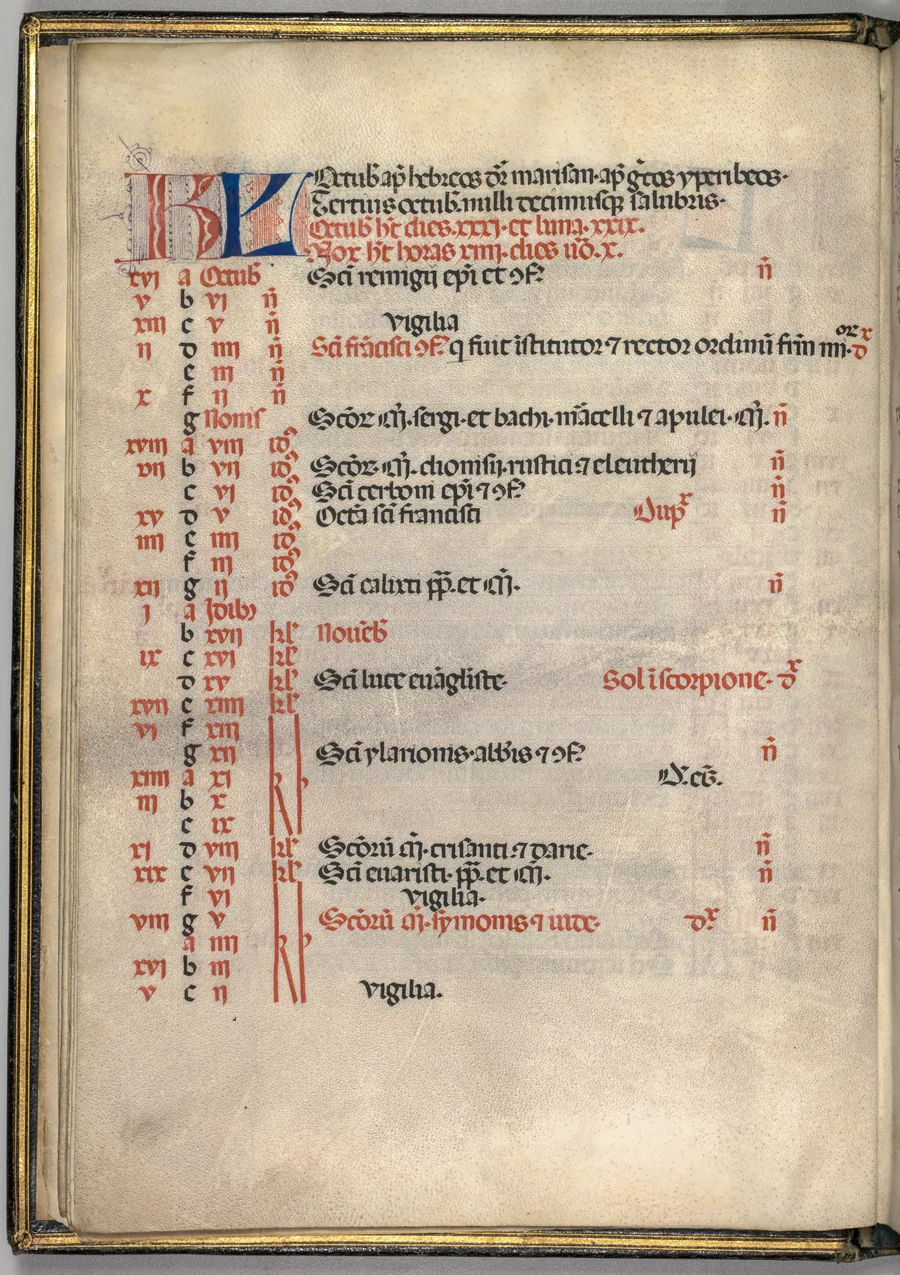 KL Octub̄ ap̄ hebreos dr̄ marisan · ap̄ gr̄cos yperibecos ·
Tertius octub̄ milli decimusq; salubris ·
Octub̄ ht̄ dies . xxxj . et luna . xxix .
Nox ht̄ horas xiiij . dies ūo . x .
xvj a Octub̄ Sc̄i remigij ep̄i et ꝯf̄ n̄
v b vj n̄
xiij c v n̄ vigilia
ij d iiij n̄ Sc̄i frāncisci ꝯf̄ q fuit īstitutor ⁊ rector ordinū fr̄m mi · or d x
e iij n̄
x f ij n̄
g Nonis Sc̄or m̄r . sergi · et bachi · mārcelli ⁊ apulei · m̄r . n̄
xviij a viij id9
vij b vij id9 Sc̄or · m̄r . dionisij · rustici ⁊ eleutherij n̄
c vj id9 Sc̄i cerboni ep̄i ⁊ ꝯf̄ n̄
xv d v id9 Octā sc̄i francisci Dup x n̄
iiij e iiij id9
f iij id9
xij g ij id9 Sc̄i calixti pp̄ . et m̄r . n̄
j a Idib9
b xvij kl̄ Nouēb̄
ix c xvj kl̄
d xv kl̄ Sc̄i luce euāgliste · Sol ī scorpione · d x
xvij e xiiij kl̄
vj f xiij
g xij Sc̄i ylarionis · abb̄is ⁊ ꝯf̄ n̄
xiiij a xj D . eḡ .
iij b x
c ix
xj d viij kl̄ Sc̄orū m̄r . crisanti . ⁊ darie · n̄
xix e vij kl̄ Sc̄i euaristi · pp̄ . et m̄r . n̄
f vj vigilia ·
viij g v Sc̄orū ap̄ . symonis · ⁊ iude · d x n̄
a iiij
xvj b iij
v c ij vigilia .